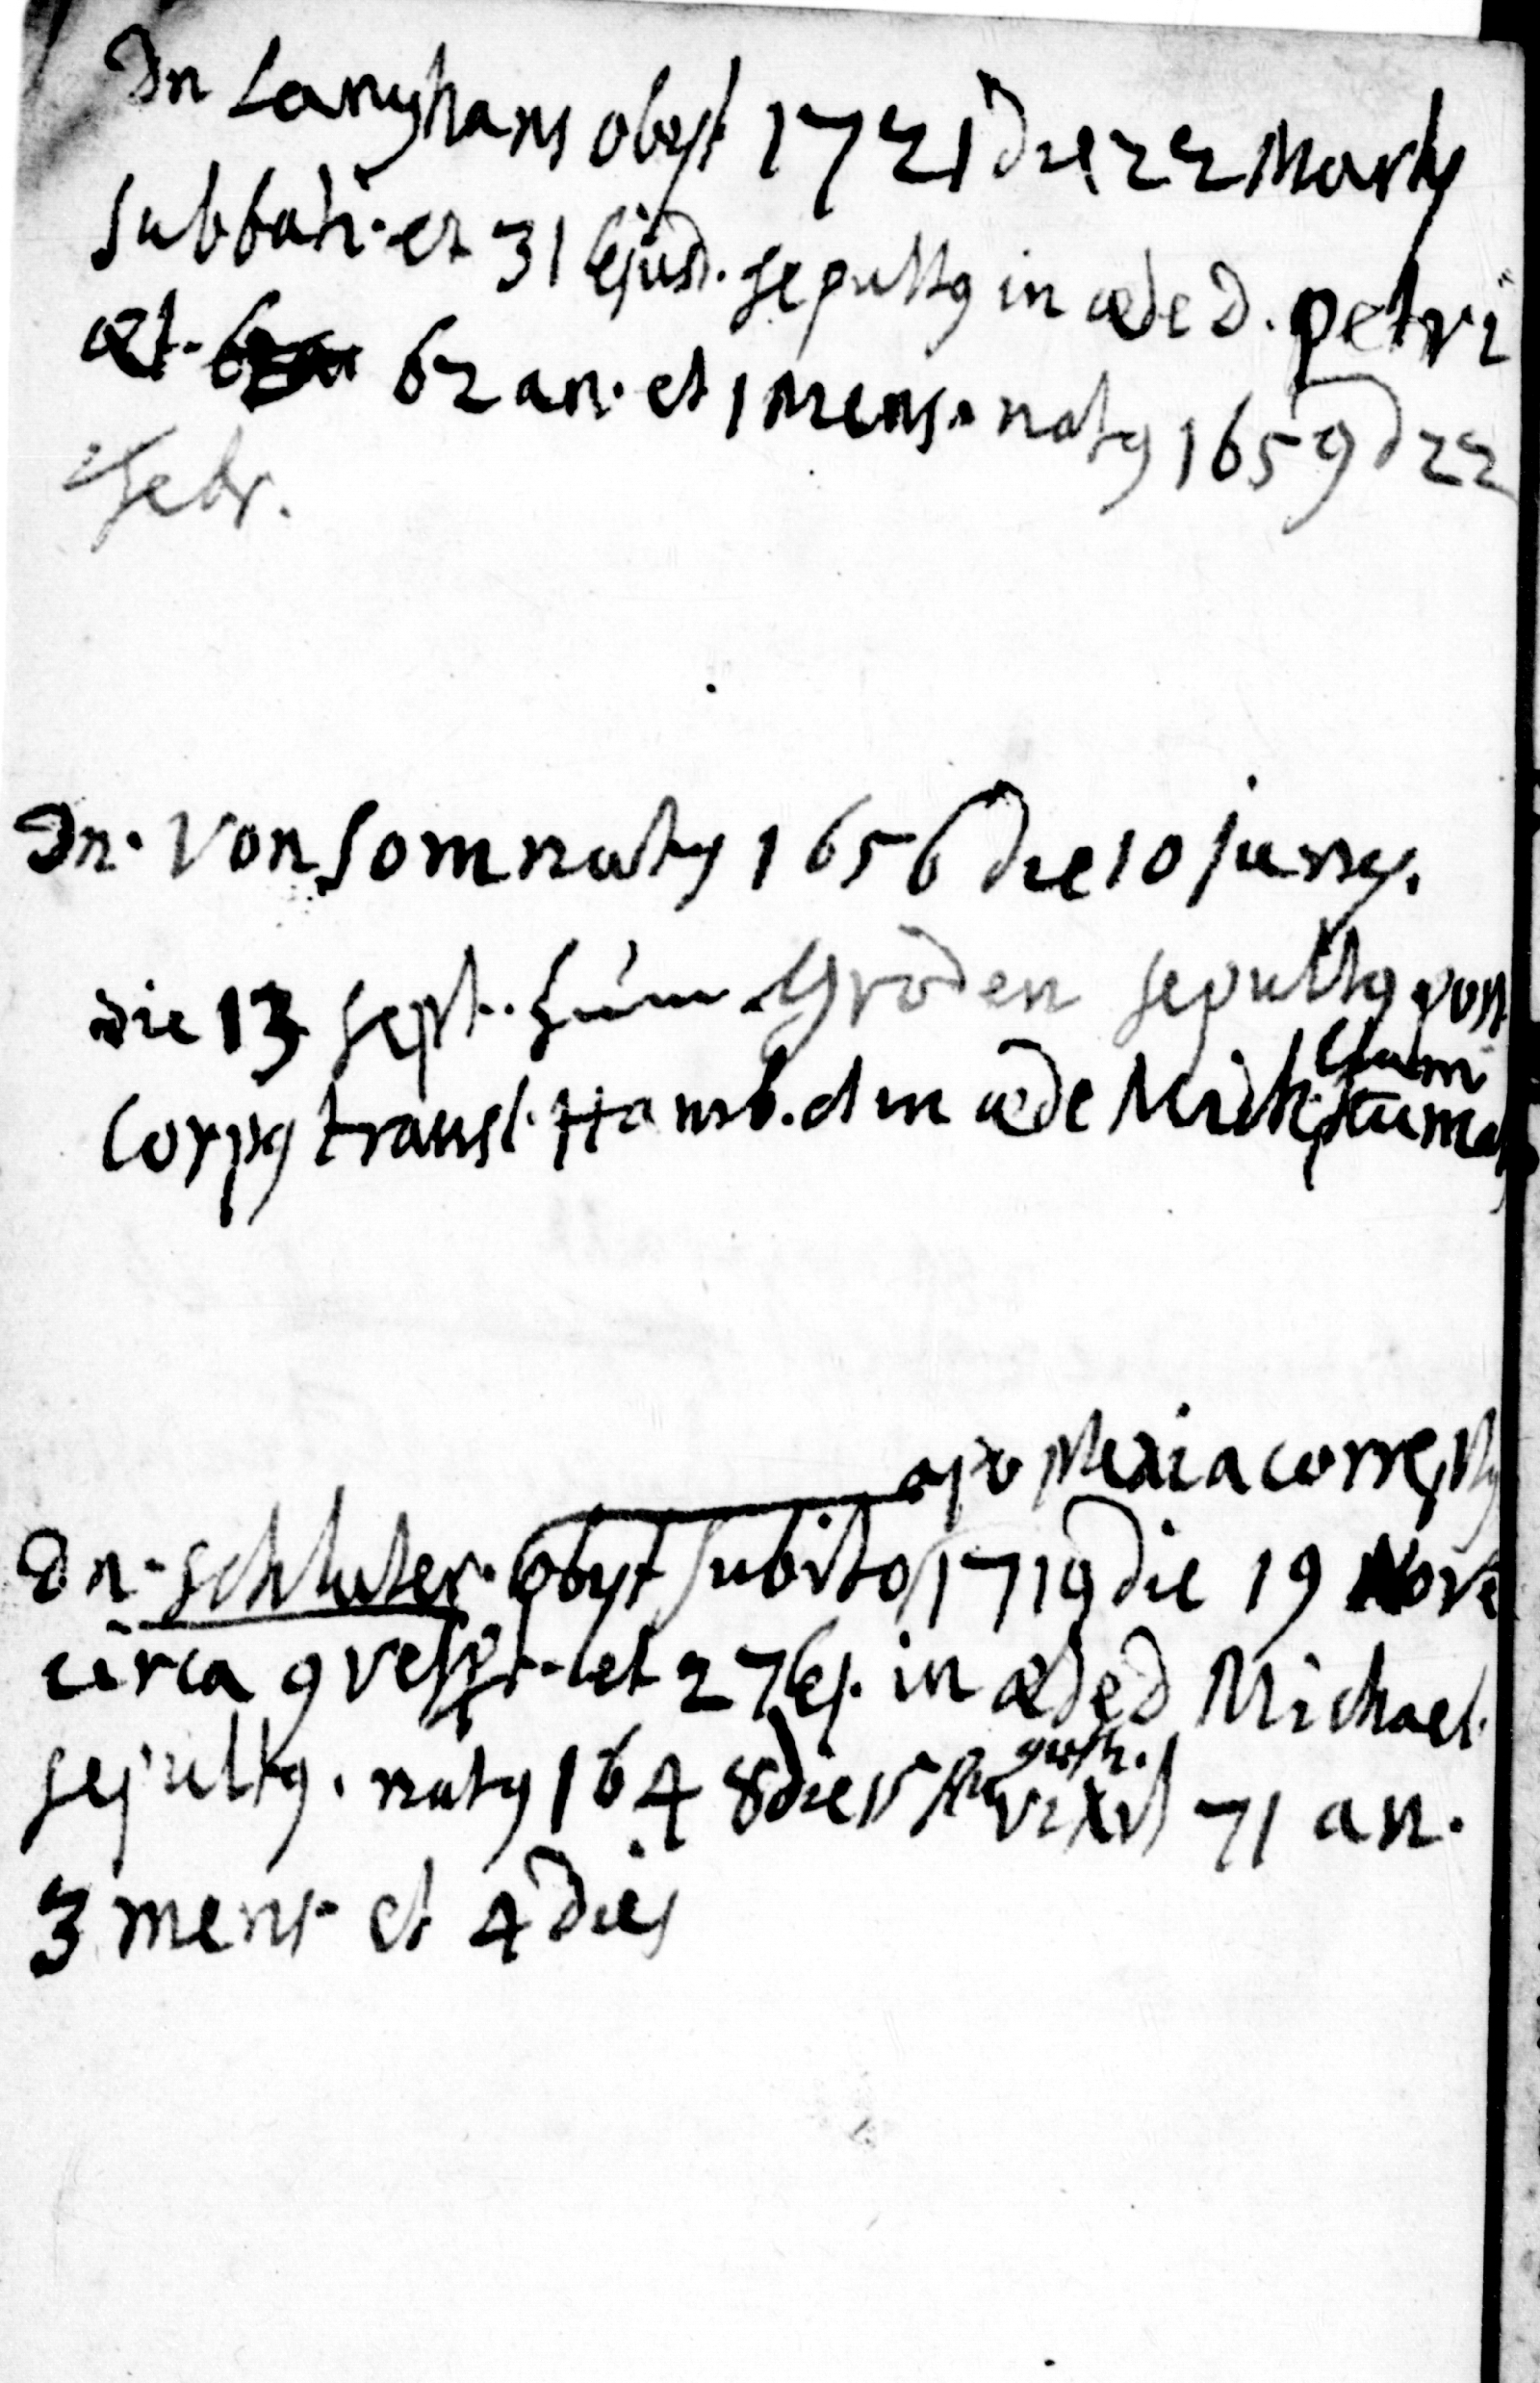 Dn Langhans obyt 1721 die 22 Marty
Sabbati. et 31 ejusd. sepultꝰ in æde D. Petri
æt. 62 an. et 1 mens. natꝰ 1659 d 22
Febr.
Dn. Von Som natꝰ 1656 die 10 juny.
die 13 Sept. zum Groden sepultꝰ post
Corpꝰ transl. Hamb. et in æde Mich.
Dn. Schluter. obyt subito apoplexia correptꝰ 1719 die 19 Nove
circa 9 vesp. et 27 ej. in æde D Michael.
sepultꝰ. natꝰ 1648 die 15 Augusti. vixit 71 an.
3 mens. et 4 dies